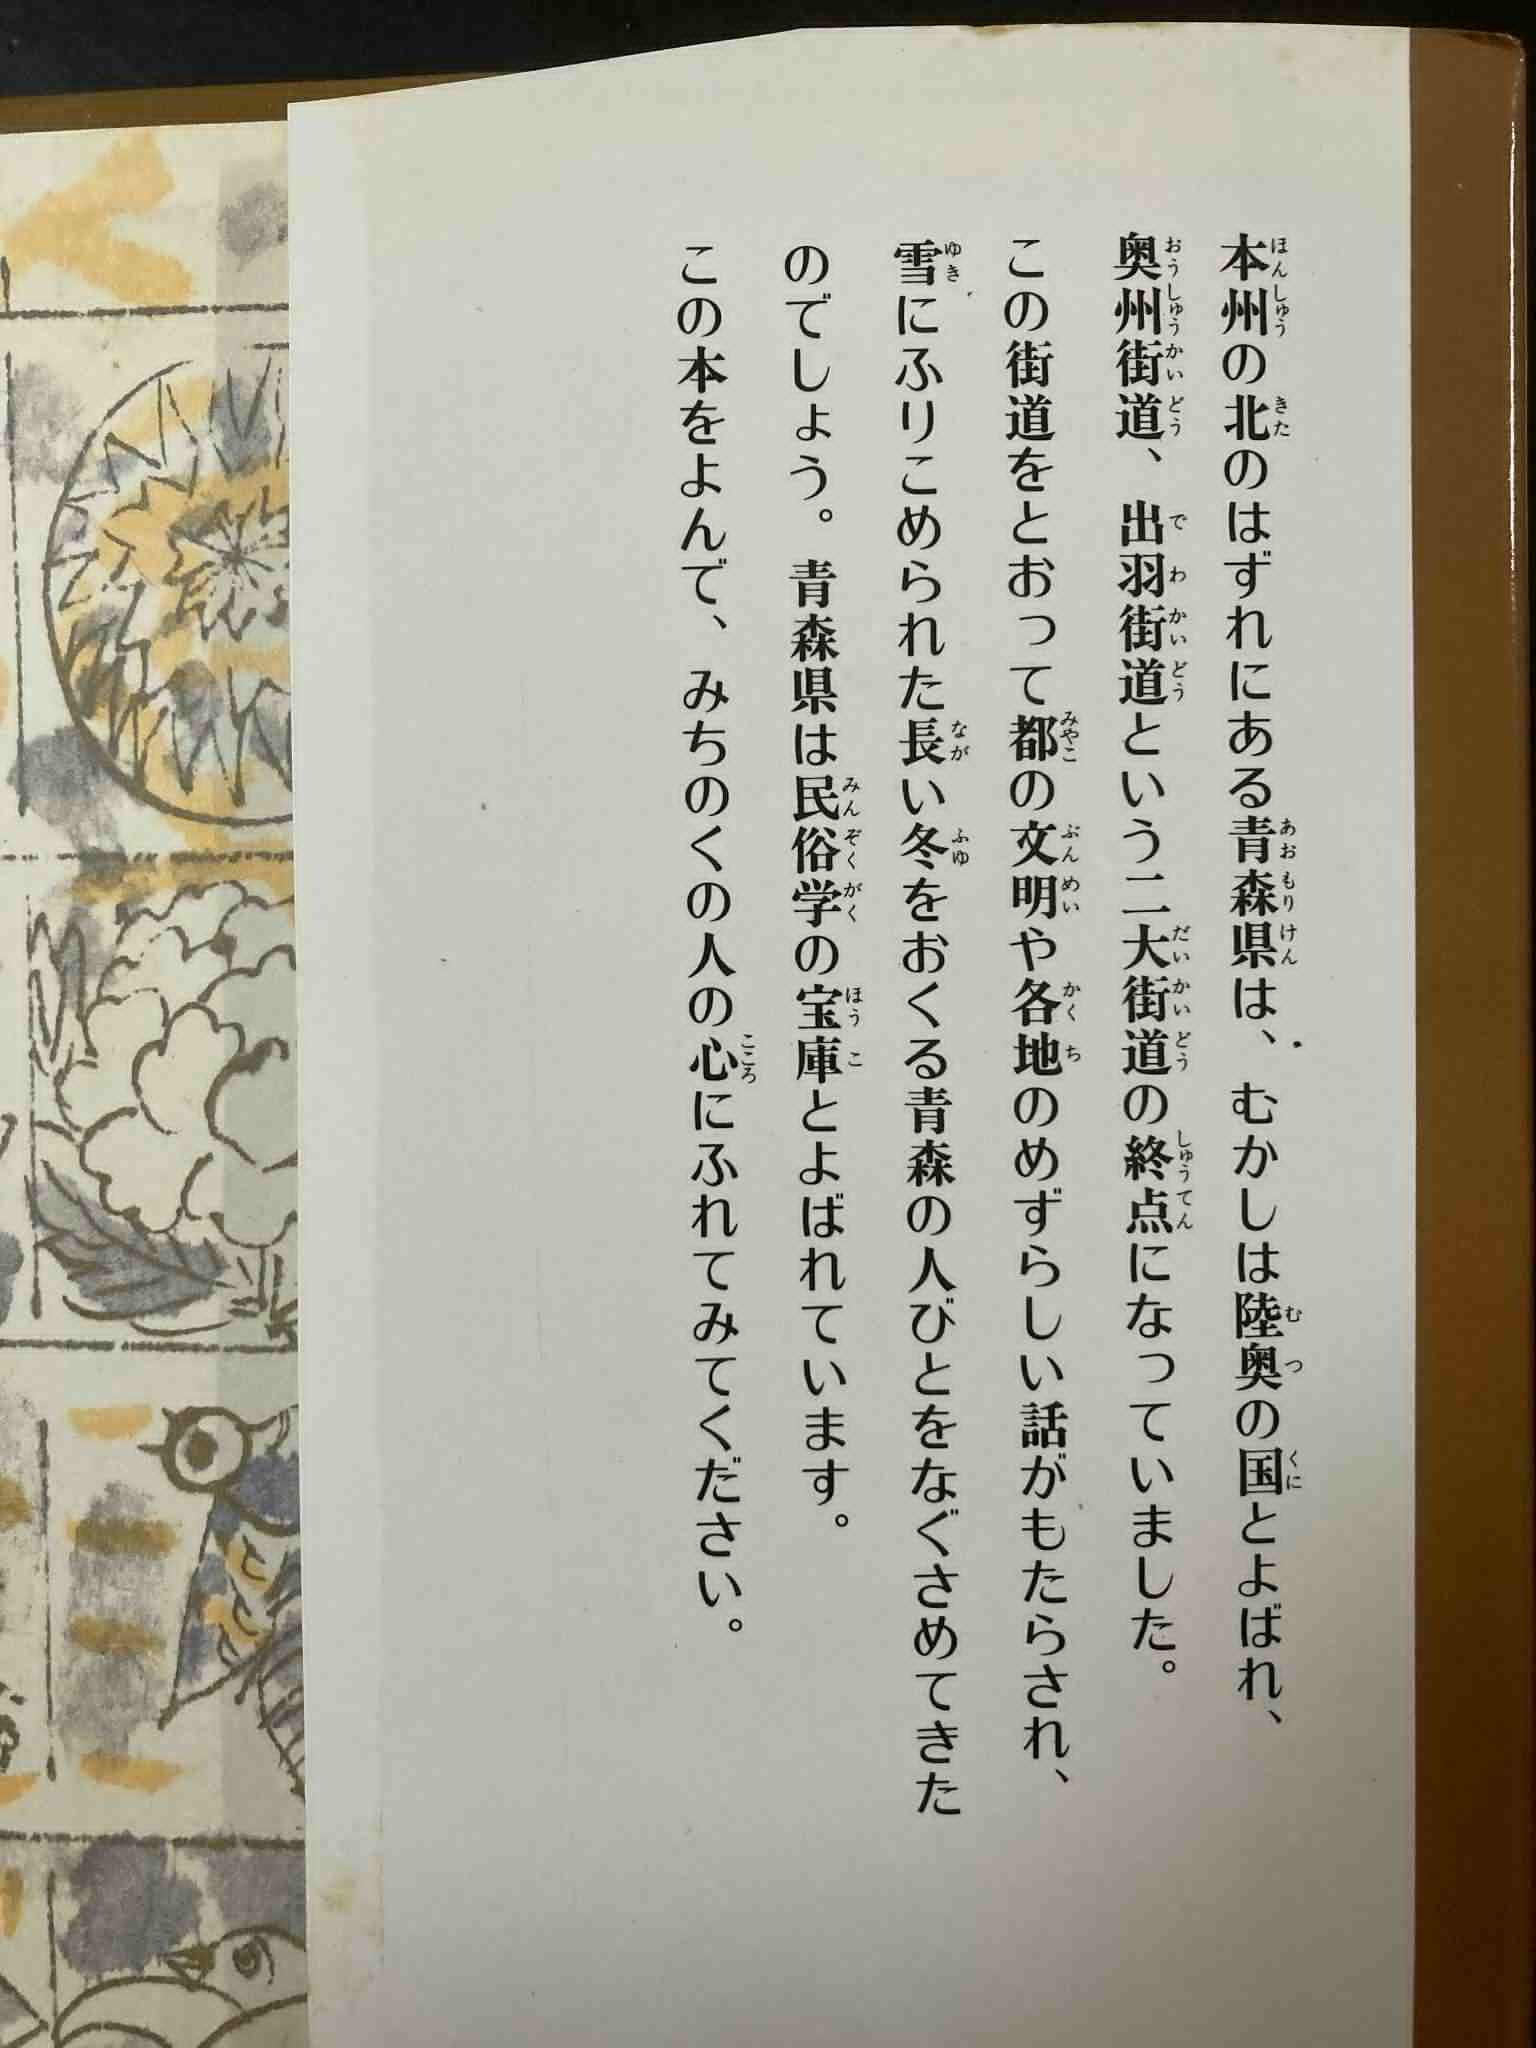 本州の北のはずれにある青森県は、むかしは陸奥の国とよばれ、
奥州街道、出羽街道という二大街道の終点になっていました。
この街道をとおって都の文明や各地のめずらしい話がもたらされ、
雪にふりこめられた長い冬をおくる青森の人びとをなぐさめてきた
のでしょう。青森県は民俗学の宝庫とよばれています。
この本をよんで、みちのくの人の心にふれてみてください。